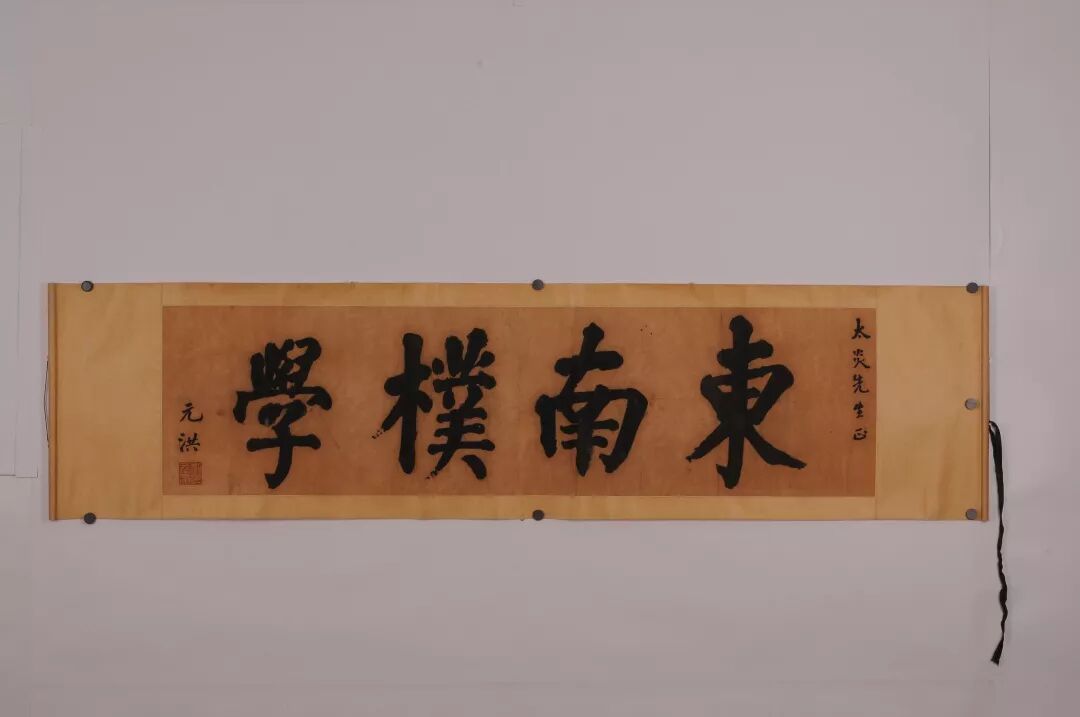 太炎先生正
東南樸學
元洪